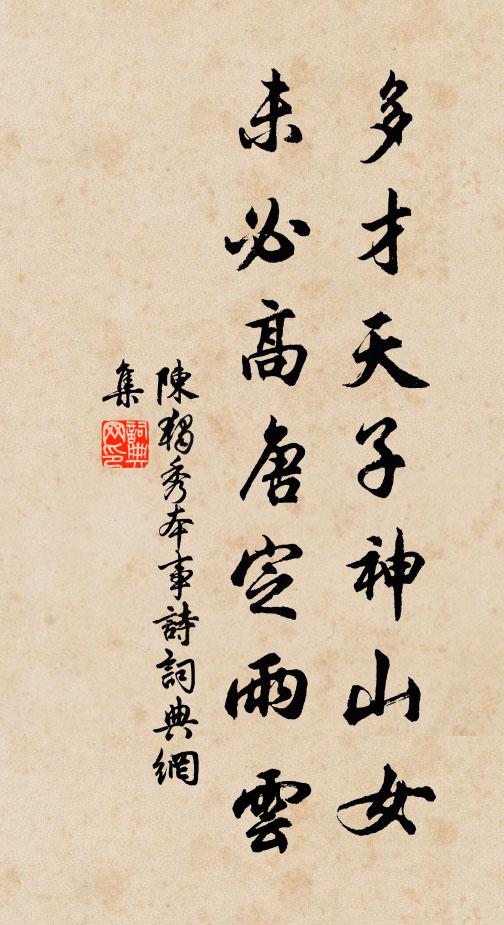 多才天子神山女
未必高唐定雨雲
陳獨秀本事詩詞典網
集
詞典
网印